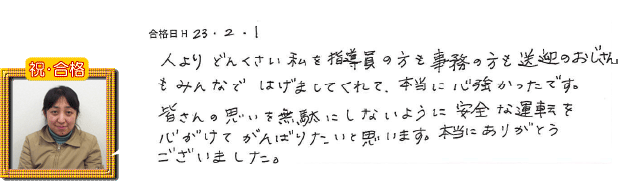 合格日H 23・2・1
祝・合格
人より どんくさい 私を指導員の方も事務の方も送迎のおじさん
もみんなで はげましてくれて、本当に心強かったです。
皆さんの思いを無駄にしないように 安全な運転を
心がけて がんばりたいと思います。本当にありがとう
ございました。